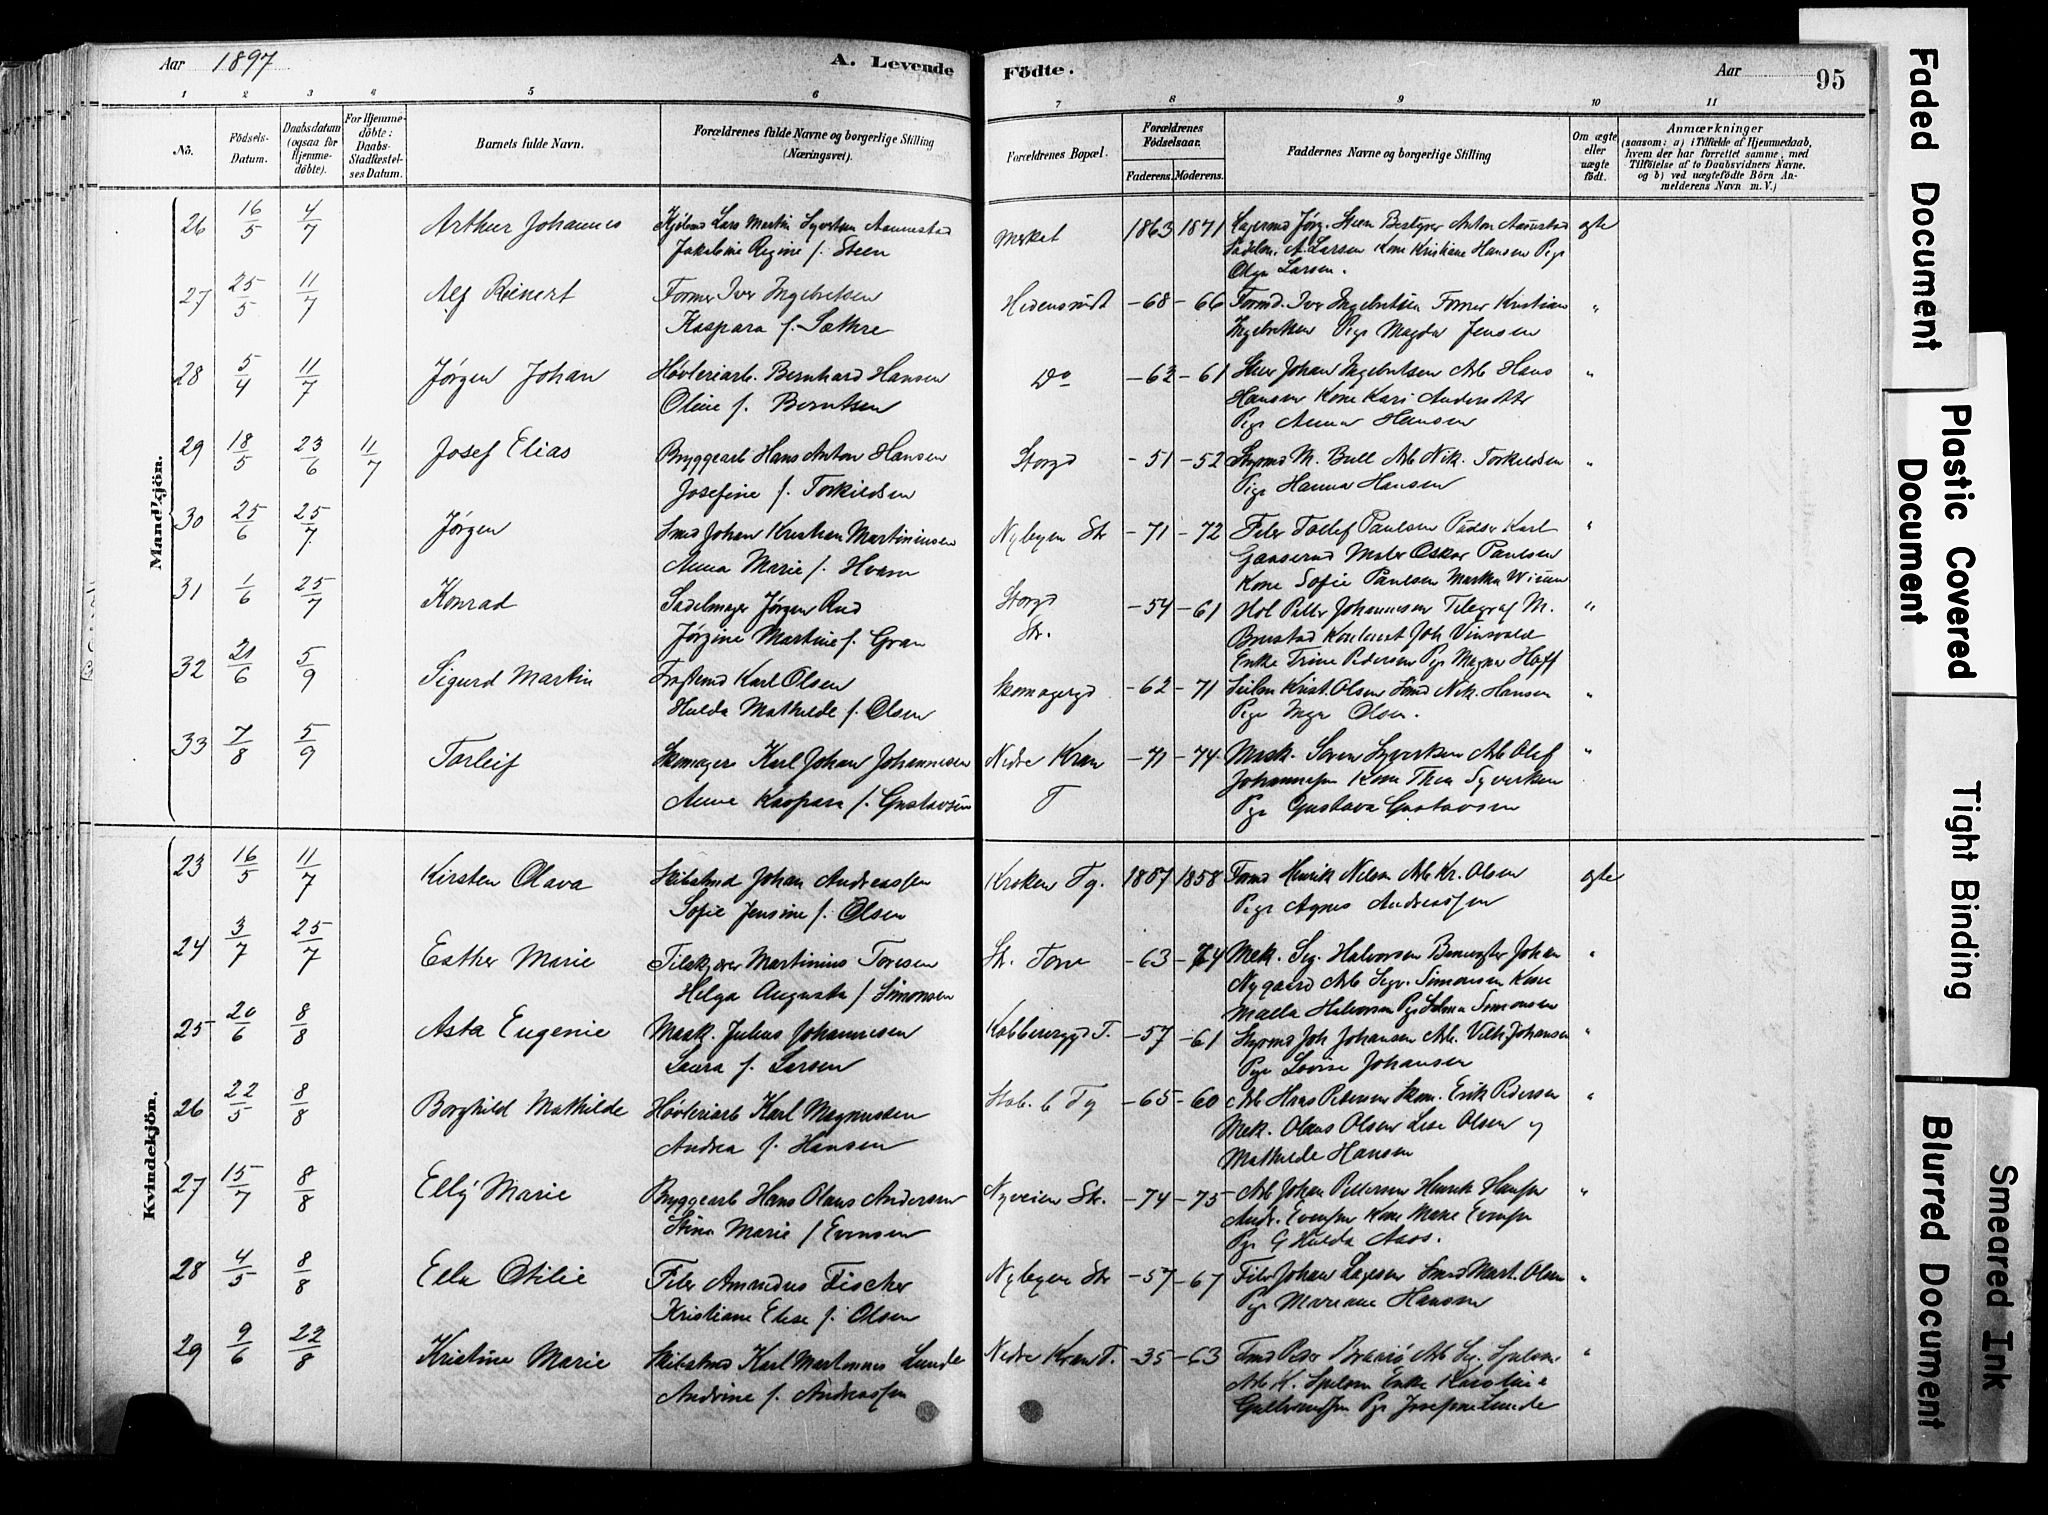 Aar 1897
A. Levende Födte.
Aar
95
1 2 3 4 5 6 7 8 9 10 11
No.
Födsels-Datum.
Daabsdatum (ogsaa for Hjemmedöbte).
For Hjemmedöbte: Daabs-Stadfæstelses Datum.
Barnets fulde Navn.
Forældrenes fulde Navne og borgerlige Stilling (Næringsvei).
Forældrenes Bopæl.
Forældrenes Födselsaar.
Faderens. Moderens.
Faddernes Navne og borgerlige Stilling
Om ægte eller uægte födt.
Anmærkninger
(saasom: a) i Tilfælde af Hjemmedaab,
hvem der har forrettet samme, med
Tilföielse af to Daabsvidners Navne.
og b) ved uægtefödte Börn Anmelderens Navn m. V.)
Mandkjön.
26 16/5 4/7 Arthur Johannes Lars Martin Syvertsen Aannestad 1863 1871 Jørg. Steen Bestyrer Anton Aanestad ægte
Jakobine Regine f. Steen A. Larsen Kone Kristiane Hansen Pige
Olga Larsen.
27 25/5 11/7 Alf Reinert Former Iver Ingebretsen -68 -66 Formd. Iver Ingebretsen Former Kristian "
Kaspara f. Sæthre Ingebretsen Pige Magda Jensen
28 5/4 11/7 Jørgen Johan Høvleriarb. Bernhard Hansen Do -62 -61 Johan Ingebretsen Arb Hans "
Oline f. Berntsen Hansen Kone Kari Andersdtr
Pige Anna Hansen
29 18/5 23/6 11/7 Josef Elias Bryggearb Hans Anton Hansen Storgd -51 -52 Styrmd M. Bull Arb Nik. Torkildsen "
Josefine f. Torkildsen Pige Hanna Hansen
30 25/6 25/7 Jørgen Smed Johan Kristian Martiniusen Nybyen Str -71 -72 Filer Tollef Paulsen Karl "
Anna Marie f. Hvam Maler Oskar Paulsen
Kone Sofie Paulsen Martha
31 1/6 25/7 Konrad Sadelmager Jørgen Rud Storgd Str. -54 -61 Peter Johannesen Telegraf M. "
Jørgine Martine f. Gran Brustad Joh
Enke Trine Pedersen Pige Magna Hoff
32 21/6 5/9 Sigurd Martin Karl Olsen Skomagergd -62 -71 Krist. Olsen Smd Nik. Hansen "
Hulda Mathilde f. Olsen Pige Inga Olsen.
33 7/8 5/9 Torleif Skomager Karl Johan Johannesen Nedre Kran T -71 -74 Mask. Søren Syvertsen Arb Olef "
Anne Kaspara f. Gustavsen Johannesen Kone Thea Syvertsen
Pige Gustava Gustavsen
Kvindekjön.
23 16/5 11/7 Kirsten Olava Skibstmd Johan Andreassen Kroken Tg. 1857 1858 Tmd Henrik Nilsen Arb Kr. Olsen ægte
Sofie Jensine f. Olsen Pige Agnes Andreassen
24 3/7 25/7 Esther Marie Martinius Toresen Str. Torve -63 -74 Mek. Sig. Halvorsen Johan "
Helga Augusta f. Simonsen Nygaard Arb Sigv. Simonsen Kone
Halvorsen Pige Simonsen
25 20/6 8/8 Asta Eugenie Mask. Julius Johannesen T. -57 -61 Styrmd Joh Johansen Arb. Vilh. Johansen "
Laura f. Larsen Pige Lovise Johansen
26 22/5 8/8 Borghild Mathilde Høvleriarb Karl Magnussen Tg -65 -60 Arb Hans Pedersen Skom. Erik Pedersen "
Andrea f. Hansen Mek. Olaus Olsen Lise Olsen og
Mathilde Hansen
27 15/7 8/8 Elly Marie Bryggearb Hans Olaus Andersen Nyveien Str. -74 -75 Arb Johan Pettersen Henrik Hansen "
Stina Marie f. Evensen Andr. Evensen Kone Marie Evensen
Pige G Hulda Aaos.
28 4/5 8/8 Ella Otilie Filer Amandus Fischer Nybyen Str -57 -67 Filer Johan Lagesen Smed Mart. Olsen "
Kristiane Elise f. Olsen Pige Mariane Hansen
29 9/6 22/8 Kristine Marie Skibstmd Karl Martinnes Lunde Nedre Kran T. -35 -63 Tmd Peder Arb "
Andrine f. Andreassen Arb K. Enke Karoline
Pige Josefine Lunde
Faded Document
Plastic Covered Document
Tight Binding
Blurred Document
Smeared Ink